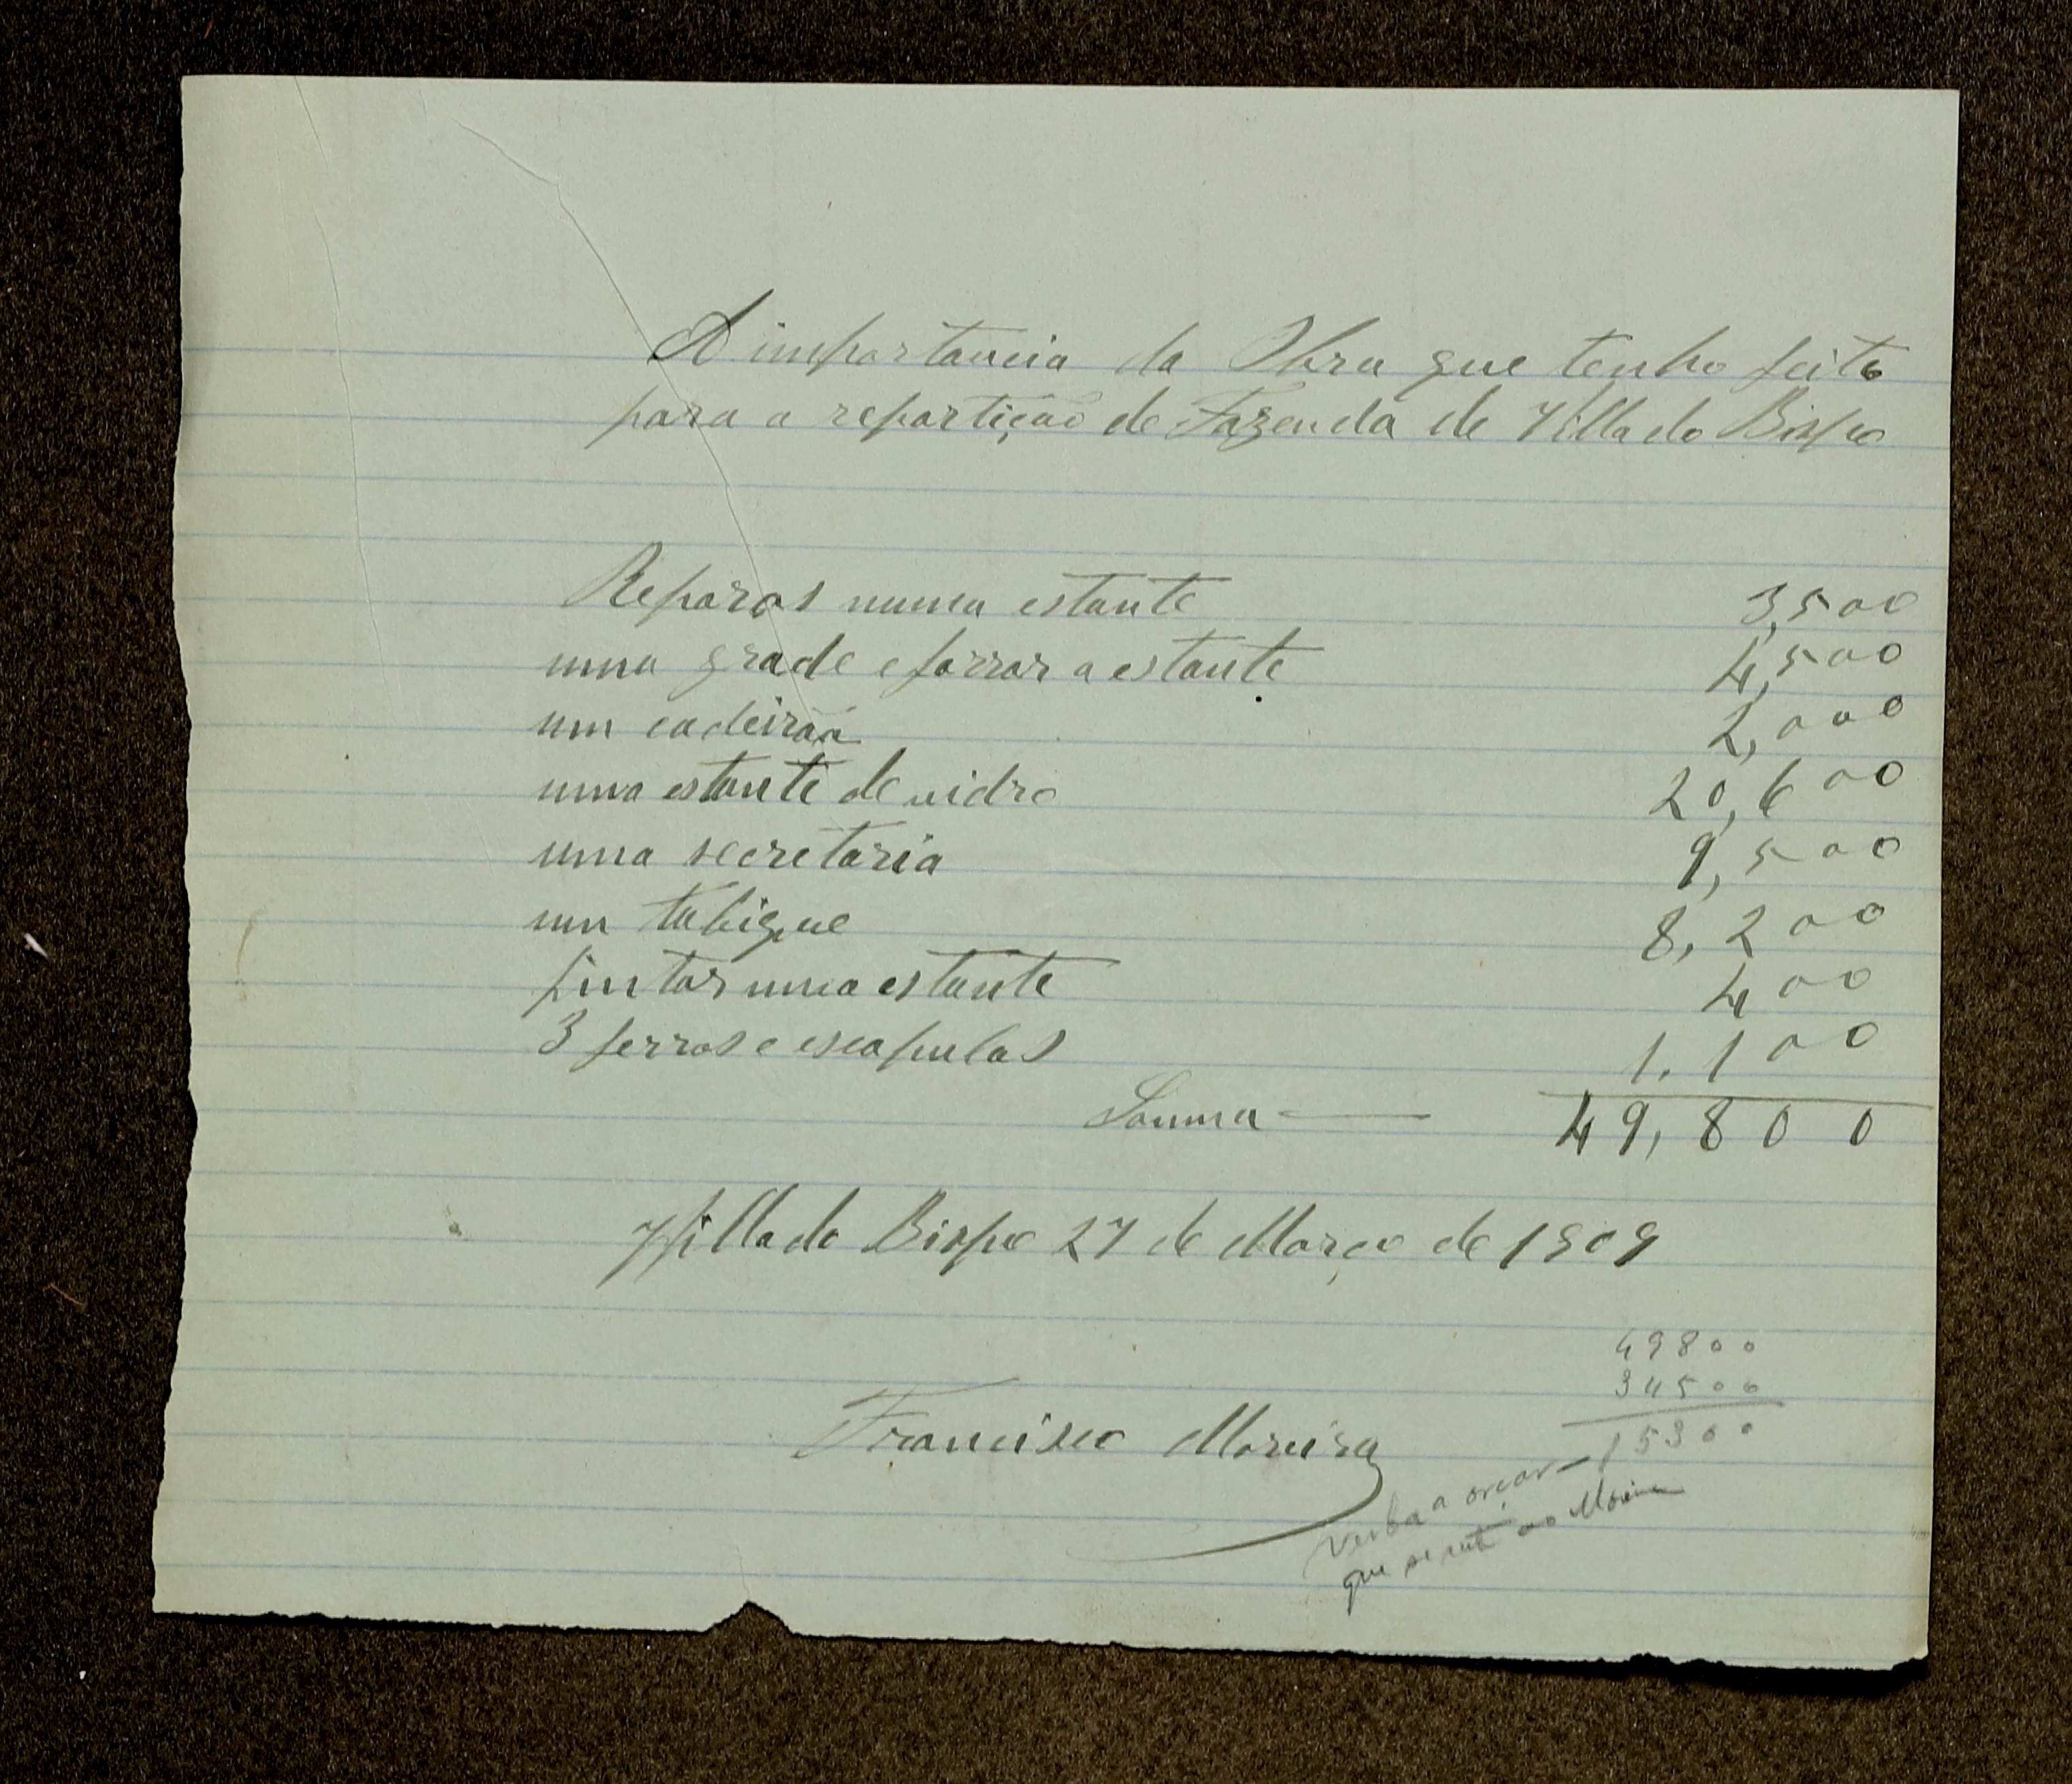 A importancia da Obra que tenho feito
para a repartição de Fazenda de Villa do Bispo
Reparos numa estante 3,500
uma grade e forrar a estante 4,500
um cadeirão 2,000
uma estante de vidro 20,600
uma secretaria 9,500
um tabique 8,200
pintar uma estante 400
3 ferros e escapulas 1.100
Somma — 49,800
Villa do Bispo 27 de Março de 1909
49800
34500
15300
Francisco Moreira
Verba a orçar —
que se ao Moreira